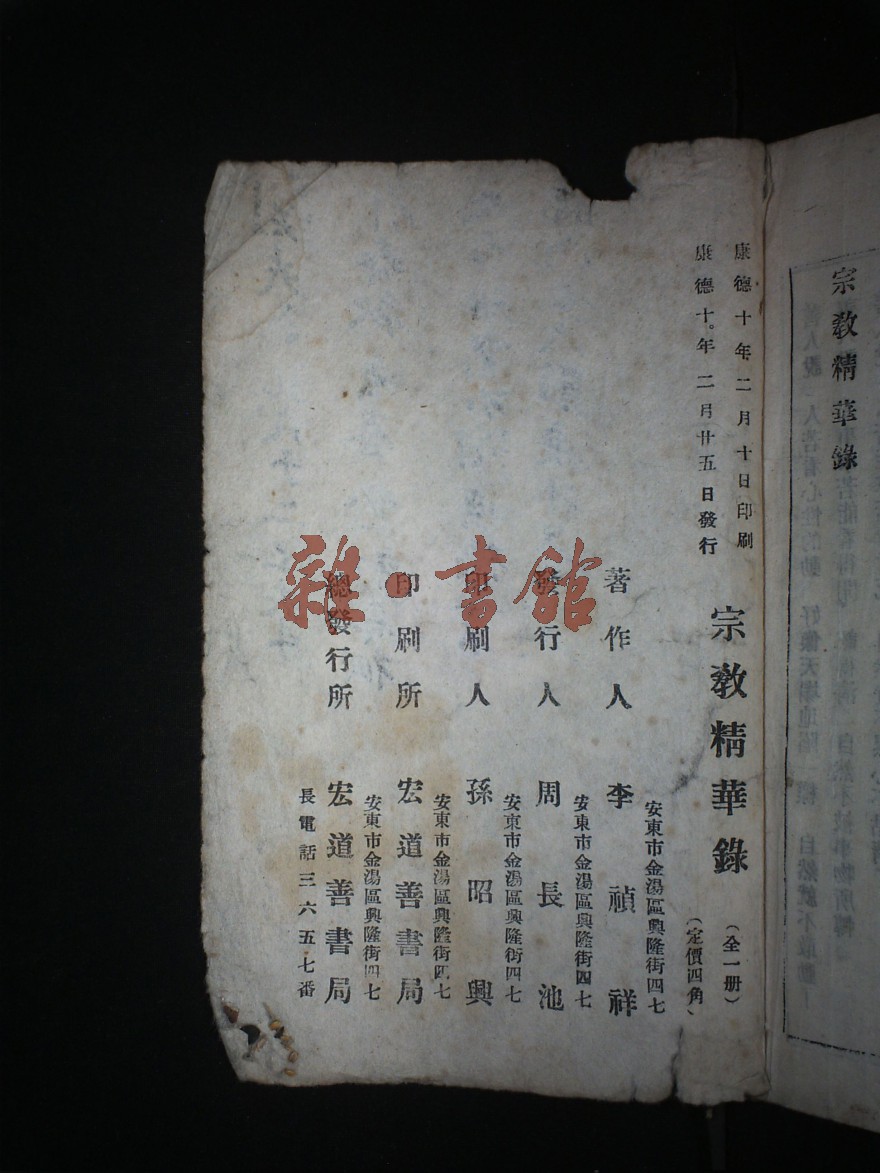 宗教精華錄
康德十年二月十日印刷
康德十年二月廿五日發行
宗教精華錄
(全一册)
(定價四角)
安東市金湯區興隆街四七
著作人 李禎祥
安東市金湯區興隆街四七
發行人 周長池
安東市金湯區興隆街四七
印刷人 孫昭興
安東市金湯區興隆街四七
印刷所 宏道善書局
安東市金湯區興隆街四七
總發行所 宏道善書局
長電話三六五七番
雜·書館